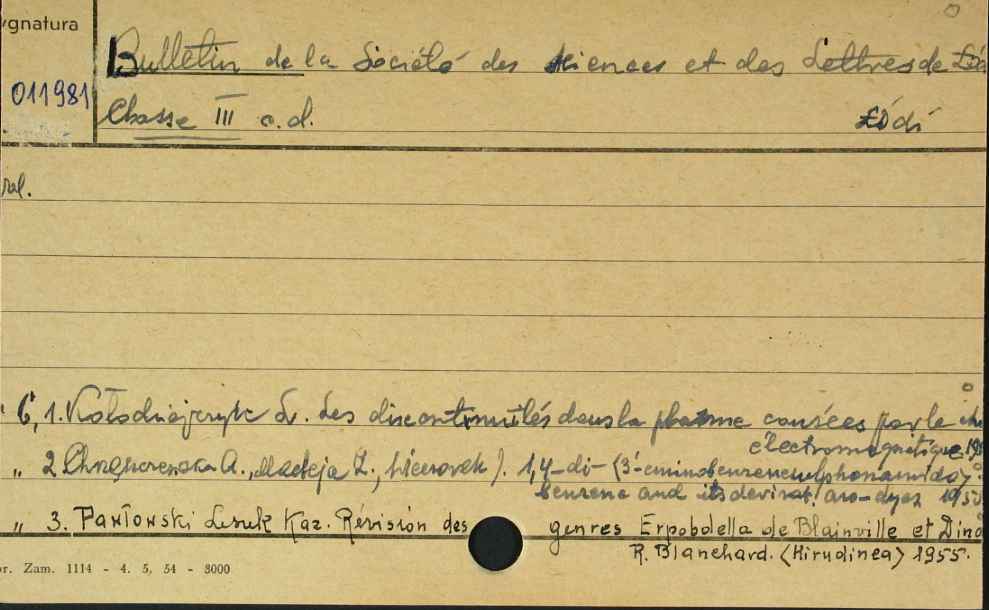 ygnatura
011981
Bulletin de la Société des Sciences et des Lettres de Łód
Classe III c.d.
Łódź
ral.
6, 1. Kołodziejczyk L. Les discontinuités dans la plasme causées par le
électromagnétique 195
„ 2. A., Macieja Z., J. 1,4-di-(3'-aminobenzenesulphonamido)-
benzene and its azo-dyes 1955
„ 3. Pawłowski Leszek Kaz. Révisión des genres Erpobdella de Blainville et Dina
R. Blanchard. (Hirudinea) 1955.
or. Zam. 1114 - 4. 5, 54 - 8000